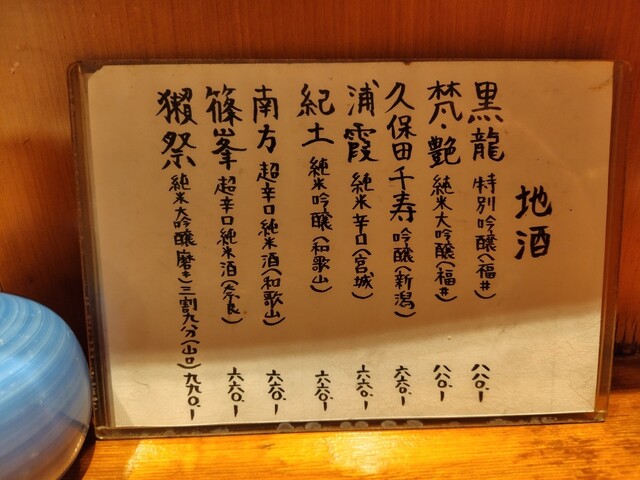 地酒
黒龍 特別吟醸(福井) 八八〇.ー
梵・艶 純米大吟醸(福井) 八八〇.ー
久保田千寿 吟醸(新潟) 六六〇.ー
浦霞 純米辛口(宮城) 六六〇.ー
紀土 純米吟醸(和歌山) 六六〇.ー
南方 超辛口純米酒(和歌山) 六六〇.ー
篠峯 超辛口純米酒(奈良) 六六〇.ー
獺祭 純米大吟醸 磨き三割九分(山口) 九九〇.ー